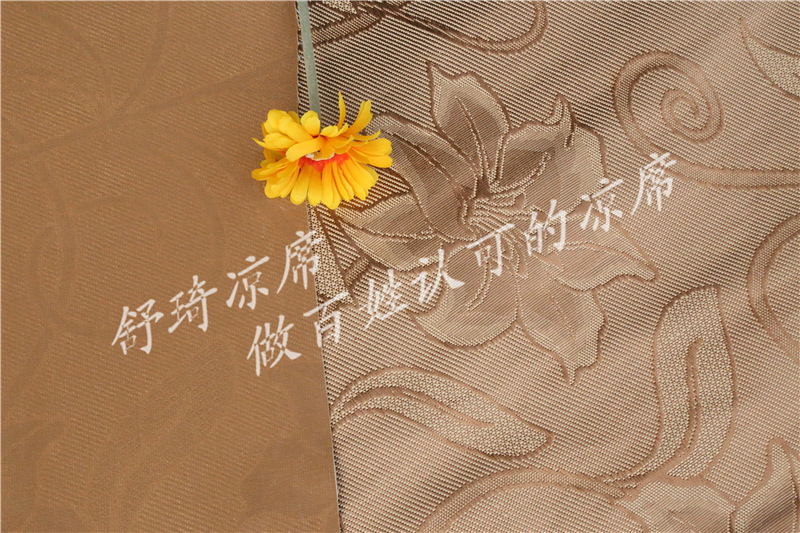 舒琦凉席
做百姓认可的凉席